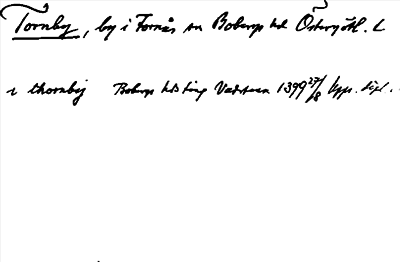 Tornby, by i Fornås sn Bobergs hd Östergötl. L
i thornbij Bobergs hds ting Vadstena 1399 27/8